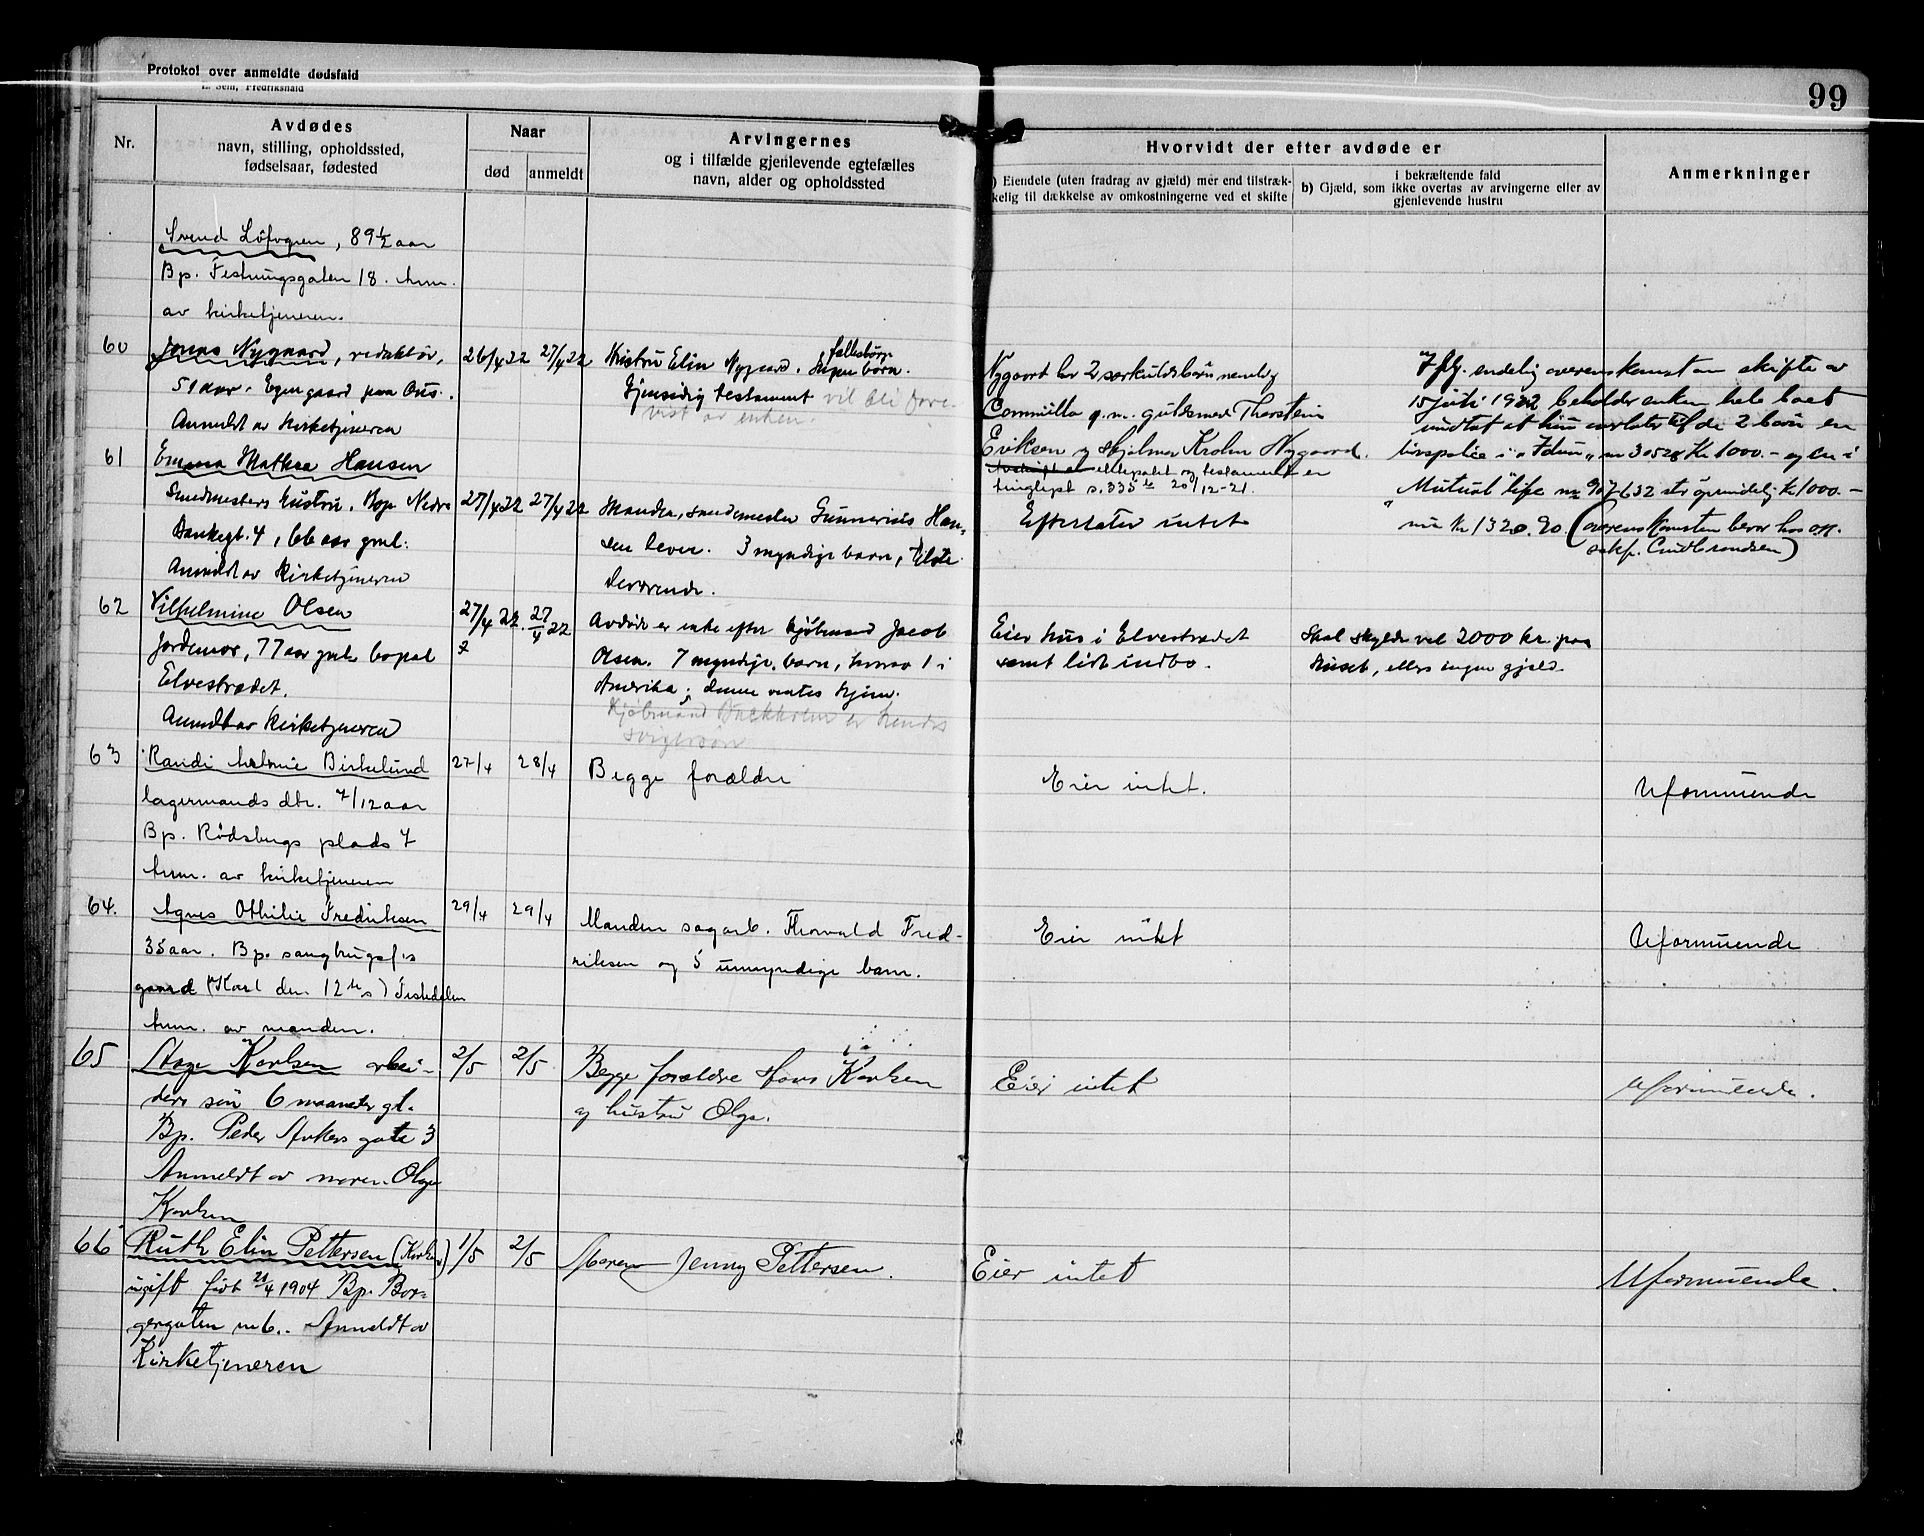 Protokol over anmeldte dødsfald
E. Sem, Fredrikshald
99
Nr.
Avdødes
navn, stilling, opholdssted,
fødselsaar, fødested
Naar
død
anmeldt
Arvingernes
og i tilfælde gjenlevende egtefælles
navn, alder og opholdssted
Hvorvidt der efter avdøde er
) Eiendele (uten fradrag av gjæld) mer end tilstræk-
kelig til dækkelse av omkostningerne ved et skifte
i bekræftende fald
b) Gjæld, som ikke overtas av arvingerne eller av
gjenlevende hustru
Anmerkninger
Svend Löfvgren, 89 1/2 aar
Bp. Festningsgaten 18. Anm.
av kirketjeneren.
60
Jonas Nygaard, redaktör,
51 aar. Egen gaard paa Ous.
Anmeldt av Kirketjeneren
26/4 22
27/4 22
Hustru Elin Nygaard. Ingen fællesbörn.
Gjensidig testament vil bli fore-
vist av enken.
Nygaard har 2 særkuldsbörn nemlig
Cammilla g.m. guldsmed Thorstein
Eriksen og Hjalmar Krohn Nygaard.
ektepakt og testament er
tinglyst s. 335 20/12-21.
Iflg. endelig overenskomst om skifte av
15 juli 1922 beholder enken hele boet
undtat at hun avlater til de 2 børn en
livspolice i "Idun" nr 30528 Kr 1000.- og en i
"Mutual" life nr 907632 oprindelig k 1000.-
nu kr 1320.90. (overenskomsten beror hos o.r.
sakf. Gudbrandsen)
61
Emma Mathea Hansen
Smedmesters hustru. Bop Nedre
Bankegt. 4, 66 aar gml.
Anmeldt av Kirketjeneren
27/4 22
27/4 22
Manden, smedmester Gunnerius Han-
sen lever. 3 myndige barn, tilste-
deværende.
Efterlater intet
62
Vilhelmine Olsen
Jordemor, 77 aar gml. bopæl
Elvestrædet.
Anmeldt av Kirketjeneren
27/4 22.
27/4 22
Avdöde er enke efter kjöbmand Jacob
Olsen. 7 myndige barn, hvorav 1 i
Amerika; denne ventes hjem.
Kjöbmand Backholm er hendes
svigersön
Eier hus i Elvestrædet
samt lidt indbo.
Skal skylde vel 2000 kr. paa
huset, ellers ingen gjæld.
63
Randi Melanie Birkelund
lagermands dtr. 7/12 aar
Bp. Rödsbergs plads 7
Anm. av kirketjeneren
27/4
28/4
Begge forældre
Eier intet.
Uformuende
64.
Agnes Othilie Fredriksen
35 aar. Bp. saugbrugsf's
gaard (Karl den 12tes) Tistedalen
Anm. av manden.
29/4
29/4
Manden sagarb. Thorvald Fred-
riksen og 5 umyndige barn.
Eier intet
Uformuende
65
Aage Karlsen arbei-
ders sön 6 maaneder gl.
Bp. Peder Ankers gate 3
Anmeldt av moren Olga
Karlsen
2/5
2/5
Begge forældre Hans Karlsen
og hustru Olga.
Eier intet
Uformuende.
66
Ruth Elin Pettersen (Karlsen)
ugift född 21/4 1904 Bp. Bor-
gergaten nr 6. Anmeldt av
Kirketjeneren
1/5
2/5
Moren Jenny Pettersen.
Eier intet
Uformuende.